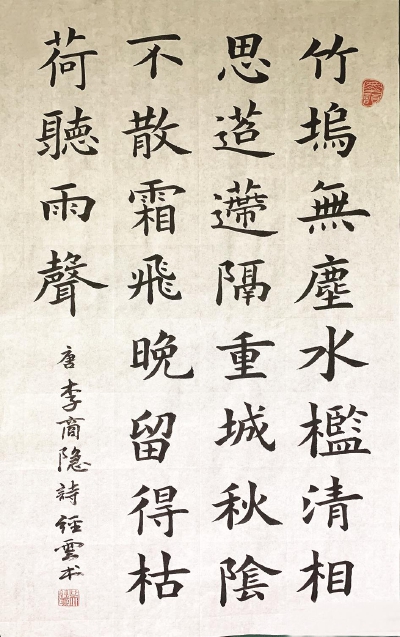 竹塢無塵水檻清相
思迢遰隔重城秋陰
不散霜飛晚留得枯
荷聽雨聲
唐李商隐詩 経雲书